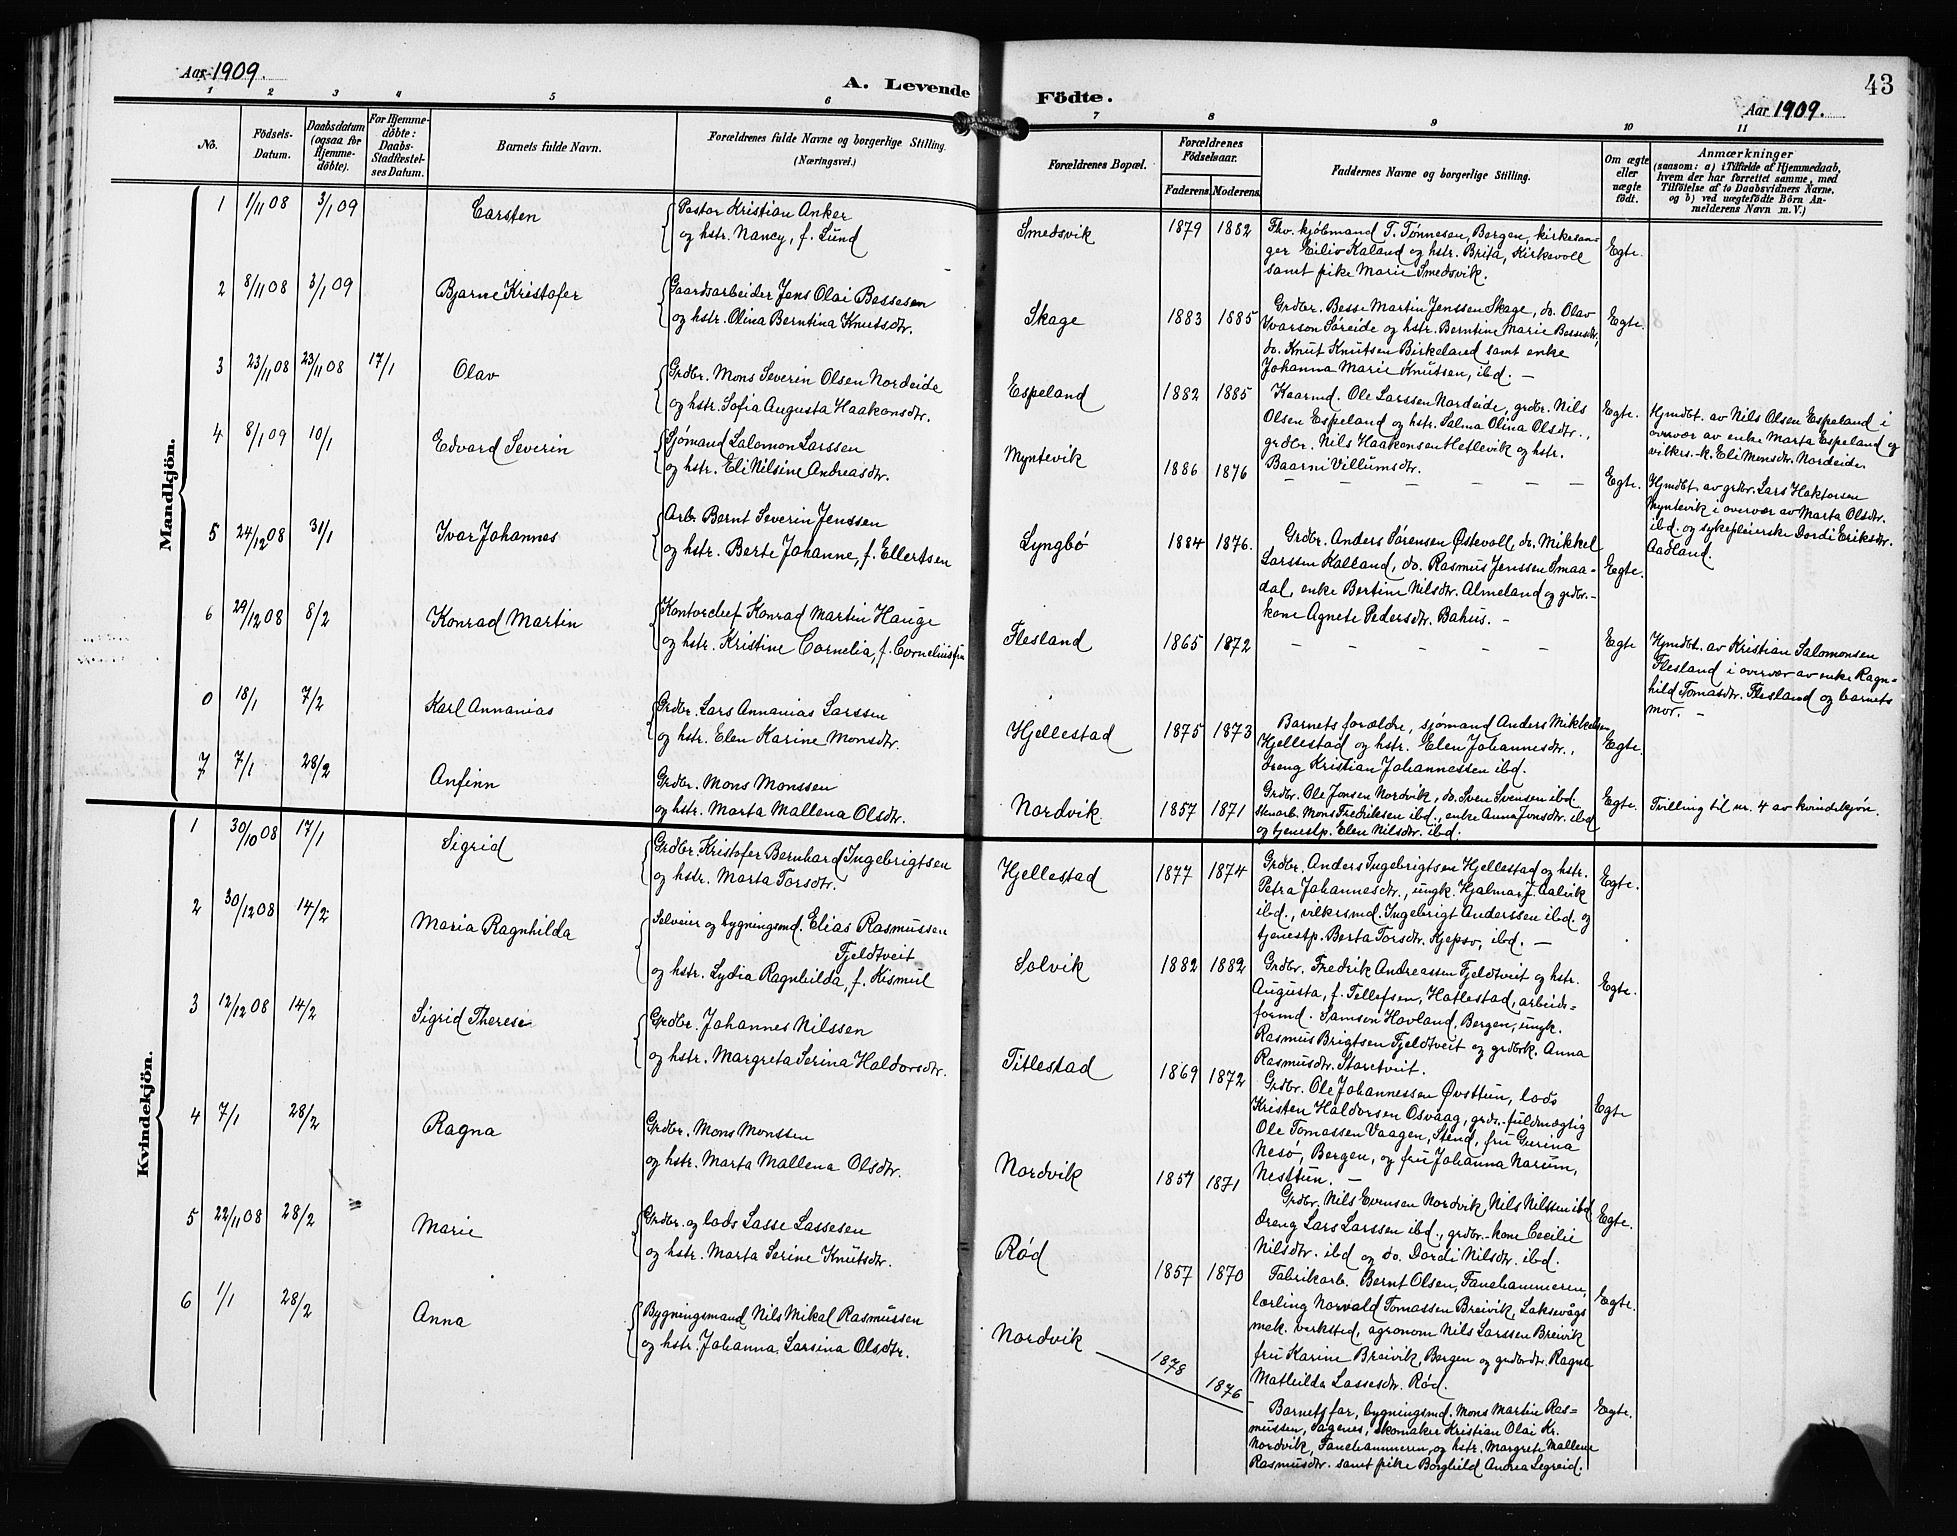 Aar 1909.
A. Levende
1 2 3 4 5 6
No.
Födsels-Datum.
Daabsdatum (ogsaa for Hjemmedöbte).
For Hjemmedöbte: Daabs-Stadfæstelses Datum.
Barnets fulde Navn.
Forældrenes fulde Navne og borgerlige Stilling.
(Næringsvei.)
Mandkjön.
1 1/11 08 3/1 09 Carsten Pastor Kristian Anker
og hstr. Nancy, f. Lund
2 8/11 08 3/1 09 Bjarne Kristofer Gaardsarbeider Jens Olai Bessesen
og hstr. Olina Berntina Knutsdtr.
3 23/11 08 23/11 08 17/1 Olav Grdbr. Mons Severin Olsen Nordeide
og hstr. Sofia Augusta Haakonsdtr.
4 8/1 09 10/1 Edvard Severin Sjømand Salomon Larssen
og hstr. Eli Nilsine Andreasdtr.
5 24/12 08 31/1 Ivar Johannes Arb. Bernt Severin Jenssen
og hstr. Berte Johanne, f. Ellertsen
6 29/12 08 8/2 Konrad Martin Kontorchef Konrad Martin Hauge
og hstr. Kristine Cornelia, f. Corneliussen
0 18/1 7/2 Karl Annanias Grdbr. Lars Annanias Larssen
og hstr. Elen Karine Monsdtr.
7 7/1 28/2 Anfinn Grdbr. Mons Monssen
og hstr. Marta Mallena Olsdtr.
Kvindekjön.
1 30/10 08 17/1 Sigrid Grdbr. Kristofer Bernhard Ingebrigtsen
og hstr. Marta Torsdtr.
2 30/12 08 14/2 Maria Ragnhilda Selveier og bygningsmd. Elias Rasmussen
Fjeldtveit
og hstr. Lydia Ragnhilda, f. Kismul
3 12/12 08 14/2 Sigrid Therese Grdbr. Johannes Nilssen
og hstr. Margreta Serina Haldorsdtr.
4 7/1 28/2 Ragna Grdbr. Mons Monssen
og hstr. Marta Mallena Olsdtr.
5 22/11 08 28/2 Marie Grdbr. og lods Lasse Lassesen
og hstr. Marta Serine Knutsdtr.
6 1/1 28/2 Anna Bygningsmand Nils Mikal Rasmussen
og hstr. Johanna Larsina Olsdtr.
43
Födte.
Aar 1909.
7 8 9 10 11
Forældrenes Bopæl.
Forældrenes Födselsaar.
Faderens. Moderens.
Faddernes Navne og borgerlige Stilling.
Om ægte eller uægte födt.
Anmærkninger
(saasom: a) i Tilfælde af Hjemmedaab,
hvem der har forrettet samme, med
Tilföielse af to Daabsvidners Navne,
og b) ved uægtefödte Börn Anmelderens Navn m. V.)
Smedsvik 1879 1882 Fhv. kjøbmand T. Tønnesen, Bergen, kirkesan-
ger Eiliv Kaland og hstr. Brita, Kirkevoll
samt pike Marie Smedsvik.
Egte.
Skage 1883 1885 Grdbr. Besse Martin Jenssen Skage, do. Olav
Ivarson Søreide og hstr. Berntine Marie Bessesdtr,
do. Knut Knutsen Birkeland samt enke
Johanna Marie Knutsen, ibd. —
Egte.
Espeland 1882 1885 Kaarmd. Ole Larssen Nordeide, grdbr. Nils
Olsen Espeland og hstr. Salma Olina Olsdtr.,
grdbr. Nils Haakonsen Hetlevik og hstr.
Baarni Villumsdtr.
Egte.
Hjmdbt. av Nils Olsen Espeland i
overvær av enke Marta Espeland og
vilkrs.-k. Eli Monsdtr. Nordeide.
Myntevik 1886 1876 — — — — — —
Egte.
Hjmdbt. av grdbr. Lars Haktorsen
Myntevik i overvær av Marta Olsdtr.
ibd. og sykepleierske Dordi Eriksdtr.
Aadland.
Lyngbø 1884 1876. Grdbr. Anders Sørensen Østevoll, do. Mikkel
Larssen Kalland, do. Rasmus Jenssen Smaa-
dal, enke Bertine Nilsdtr. Almeland og grdbr.-
kone Agnete Pedersdtr. Bahus. —
Egte.
Flesland 1865 1872 — — — — —
Egte
Hjmdbt. av Kristian Salomonsen
Flesland i overvær av enke Ragn-
hild Tomasdtr. Flesland og barnets
mor. —
Hjellestad 1875 1873 Barnets forældre, sjømand Anders Mikkelsen
Hjellestad og hstr. Elen Johannesdtr.,
dreng Kristian Johannessen ibd.
Egte.
Nordvik 1857 1871 Grdbr. Ole Jonsen Nordvik, do. Sven Svensen ibd.
Stenarb. Mons Fredriksen ibd., enke Anna Jonsdtr. ibd
og tjenestp. Elen Nilsdtr. ibd.
Egte.
Tvilling til nr. 4 av kvindekjøn.
Hjellestad 1877 1874 Grdbr. Anders Ingebrigtsen Hjellestad og hstr.
Petra Johannesdtr., ungk. Hjalmar J. Aalvik
ibd., vilkrsmd. Ingebrigt Anderssen ibd. og
tjenestp. Berta Torsdtr. Kjepso, ibd. —
Egte.
Solvik 1882 1882 Grdbr. Fredrik Andreassen Fjeldtveit og hstr.
Augusta, f. Tellefsen, Hatlestad, arbeids-
formd. Samson Hovland, Bergen, ungk.
Rasmus Brigtsen Fjeldtveit og grdbrk. Anna
Rasmusdtr. Staretveit.
Egte.
Titlestad 1869 1872 Grdbr. Ole Johannessen Øvsttun, lods
Kristen Haldorsen Osvaag, grds.-fuldmægtig
Ole Tomassen Vaagen, Stend, fru Gurina
Nesø, Bergen, og fru Johanna Narum,
Nesttun. —
Egte
Nordvik 1857 1871 Grdbr. Nils Evensen Nordvik, Nils Nilssen ibd
dreng Lars Larssen ibd., grdbr.-kone Cecilie
Nilsdtr. ibd og do. Dordi Nilsdtr. ibd.
Egte.
Rød 1857 1870 Fabrikarb. Bernt Olsen, Fanehammeren,
lærling Norvald Tomassen Breivik, Laksevågs
mek. verksted, agronom Nils Larssen Breivik
fru Karine Breivik, Bergen og grdbrdtr. Ragna
Mathilda Lassesdtr. Rød.
Egte.
Nordvik 1878 1876 Barnets far, bygningsmd. Mons Martin Ras-
mussen, Søgenes, skomaker Kristian Olai Kr.
Nordvik, Fanehammeren, og hstr. Margrete Mallene
Rasmusdtr. samt pike Borghild Andrea Legreid.
Egte.